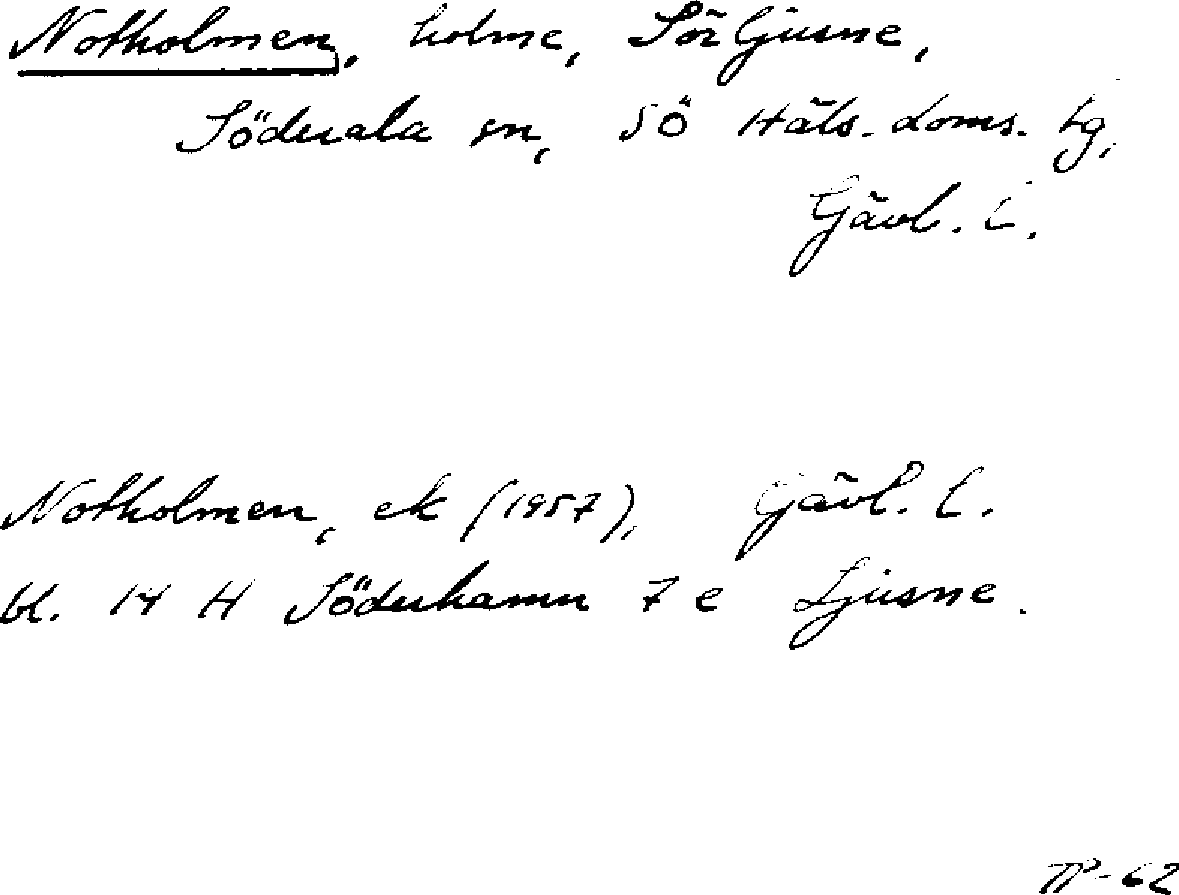 Notholmen, holme, Sörljusne,
Söderala sn, SÖ Häls. doms. tg,
Gävl. l.
Notholmen, ek (1957), Gävl. l.
bl. 14 H Söderhamn 7 e Ljusne.
TP-62